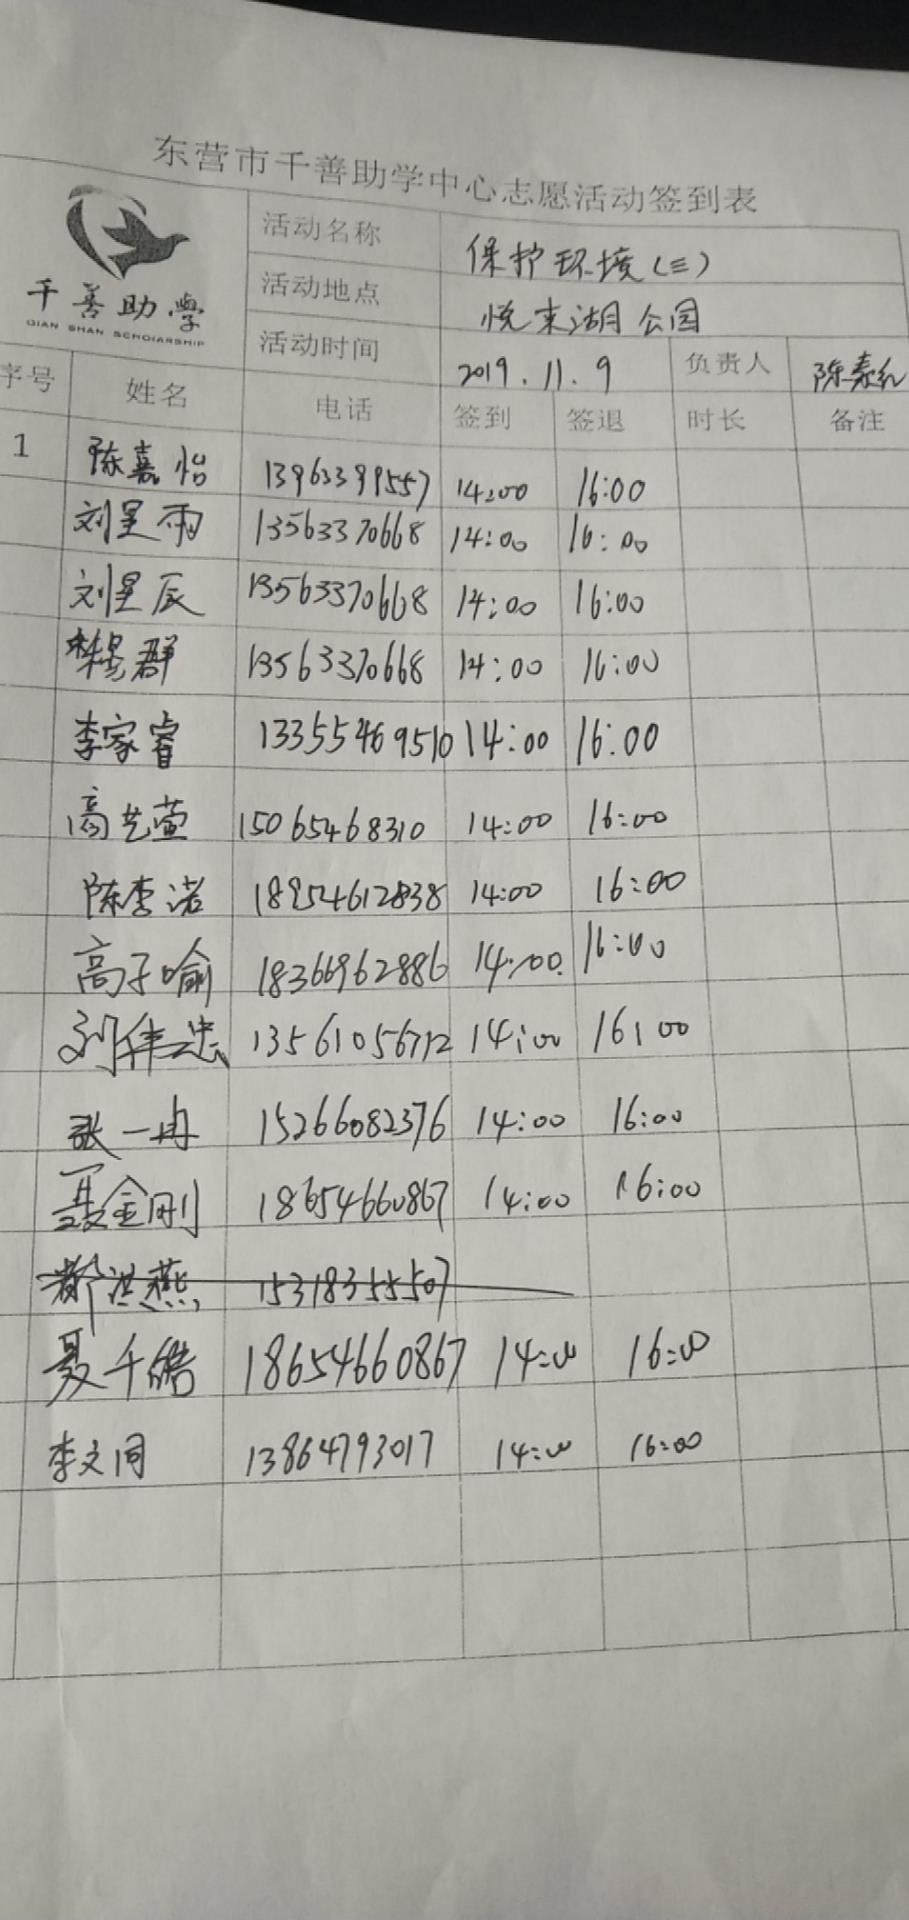 东营市千善助学中心志愿活动签到表
千善助學
QIAN SHAN SCHOLARSHIP
活动名称 保护环境(三)
活动地点 悦来湖公园
活动时间 2019.11.9 负责人 陈春红
序号 姓名 电话 签到 签退 时长 备注
1 陈嘉怡 13963399557 14:00 16:00
刘星雨 13563370668 14:00 16:00
刘星辰 13563370668 14:00 16:00
杨群 13563370668 14:00 16:00
李家睿 13355469510 14:00 16:00
高艺萱 15065468310 14:00 16:00
陈李诺 18954612838 14:00 16:00
高子喻 18366962886 14:00 16:00
刘伟忠 13561056712 14:00 16:00
张一冉 15266082376 14:00 16:00
聂金刚 18654660867 14:00 16:00
郝洪燕 15318355507
聂千皓 18654660867 14:00 16:00
李文同 13864793017 14:00 16:00